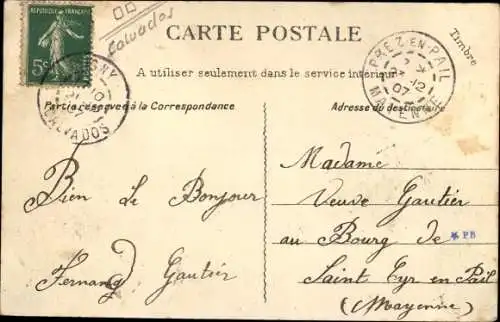 Calvados
CARTE POSTALE
Timbre
RÉPUBLIQUE FRANÇAISE
5c
A utiliser seulement dans le service intérieur
PREZ-EN-PAIL
12
07
MAYENNE
CALVADOS
Partie réservée à la Correspondance
Adresse du destinataire
Bien Le Bonjour
Fernand Gautier
Madame
Veuve Gautier
au Bourg de
PB
Saint Cyr en Pail
(Mayenne)